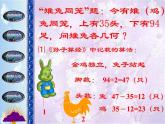 “雉兔同笼”题:今有雉(鸡)
兔同笼,上有35头,下有94
足,问雉兔各几何?
《孙子算经》中记载的算法:
金鸡独立,兔子站起
脚数:94÷2=47(只)
兔 47-35=12(只)
鸡 35-12=23(只)